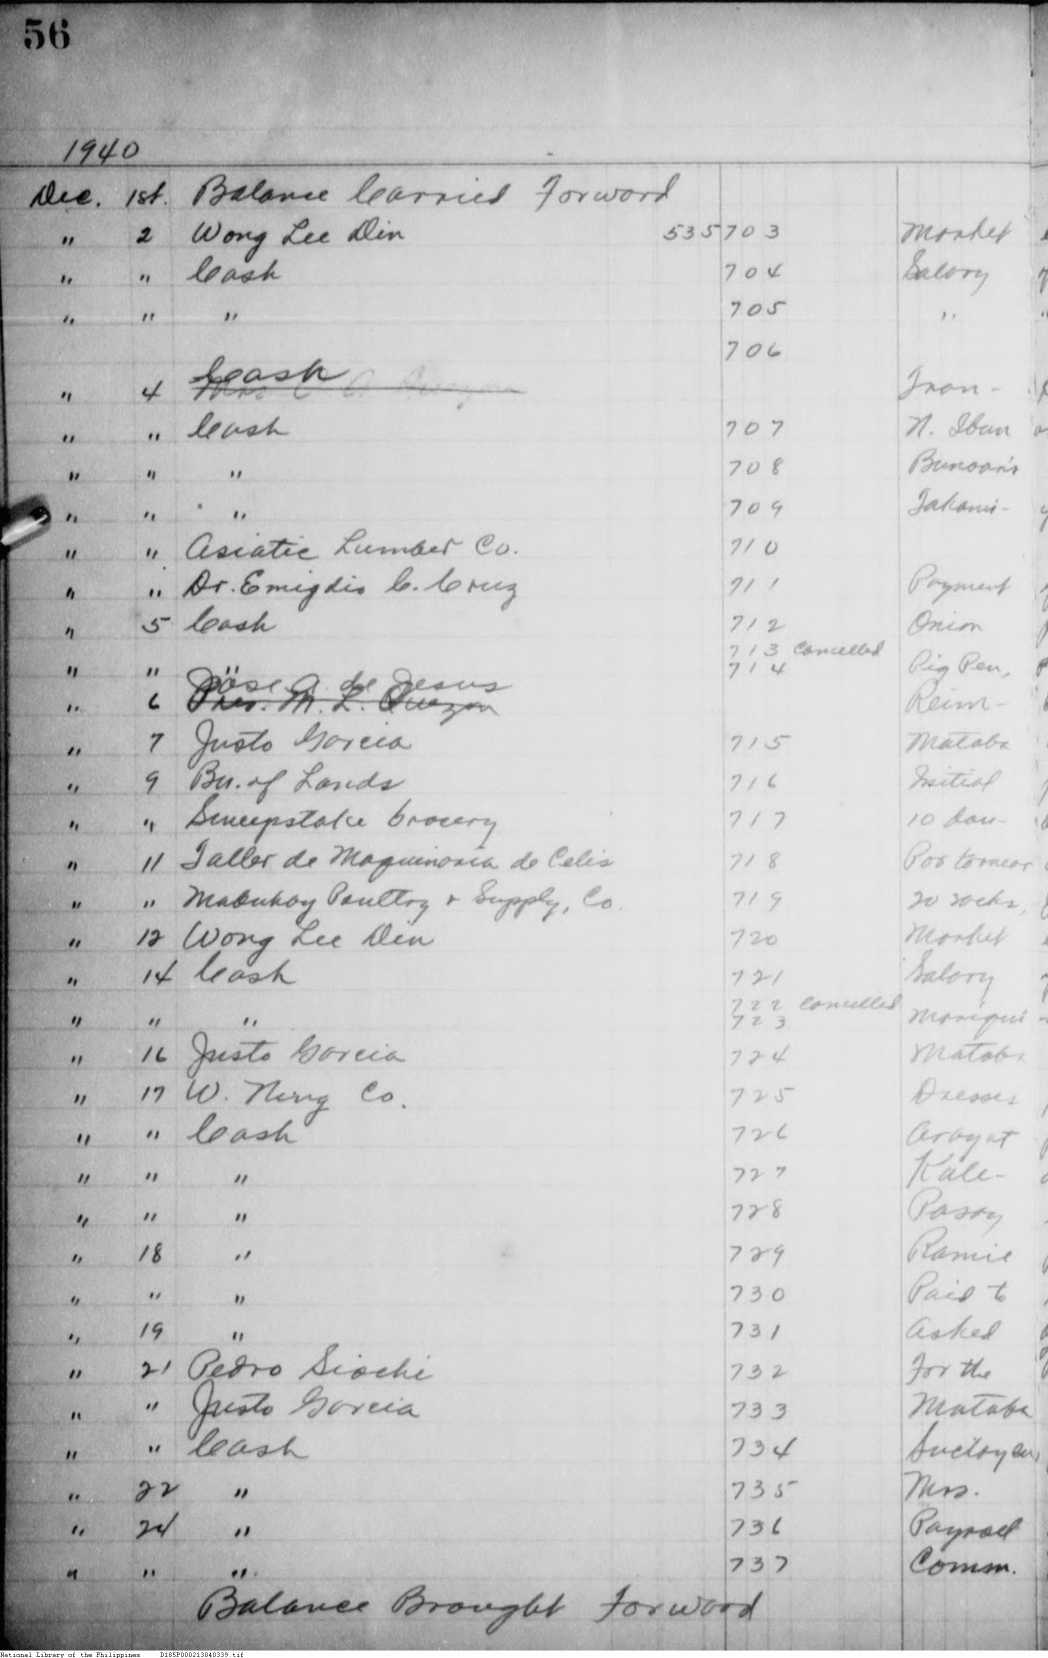 56
1940
Dec. 1st. Balance Carried Forward
" 2 Wong Lee Din 535703 Market
" " Cash 704 Salary
" " " 705 "
706
Cash
" 4 Tran-
" " Cash 707 N. Iban
" " " 708
" " " 709
" " Asiatic Lumber Co. 710
" " Dr. Emigdio C. Cruz 711 Payment
" 5 Cash 712 Onion
713 Cancelled
" " " 714 Pig Pen,
Jose A. de Jesus
" 6 Pres. M. L. Quezon Reim-
" 7 Justo Garcia 715 Mataba
" 9 Bu. of Lands 716 Initial
" " Sweepstake Grocery 717 10
" 11 Taller de Maquinaria de Celis 718 Por tornear
" " Mabuhay Poultry & Supply, Co. 719 20 sacks,
" 12 Wong Lee Din 720 Market
" 14 Cash 721 Salary
722 Cancelled
" " " 723 Mariqui-
" 16 Justo Garcia 724 Mataba
" 17 W. Co. 725 Dresses
" " Cash 726 Arayat
" " " 727 Kale-
" " " 728 Pasay
" 18 " 729 Ramie
" " " 730 Paid to
" 19 " 731 Asked
" 21 Pedro Siochi 732 For the
" " Justo Garcia 733 Mataba
" " Cash 734
" 22 " 735 Mrs.
" 24 " 736 Payroll
" " " 737 Comm.
Balance Brought Forward
National Library of the Philippines D185P000213040339.tif